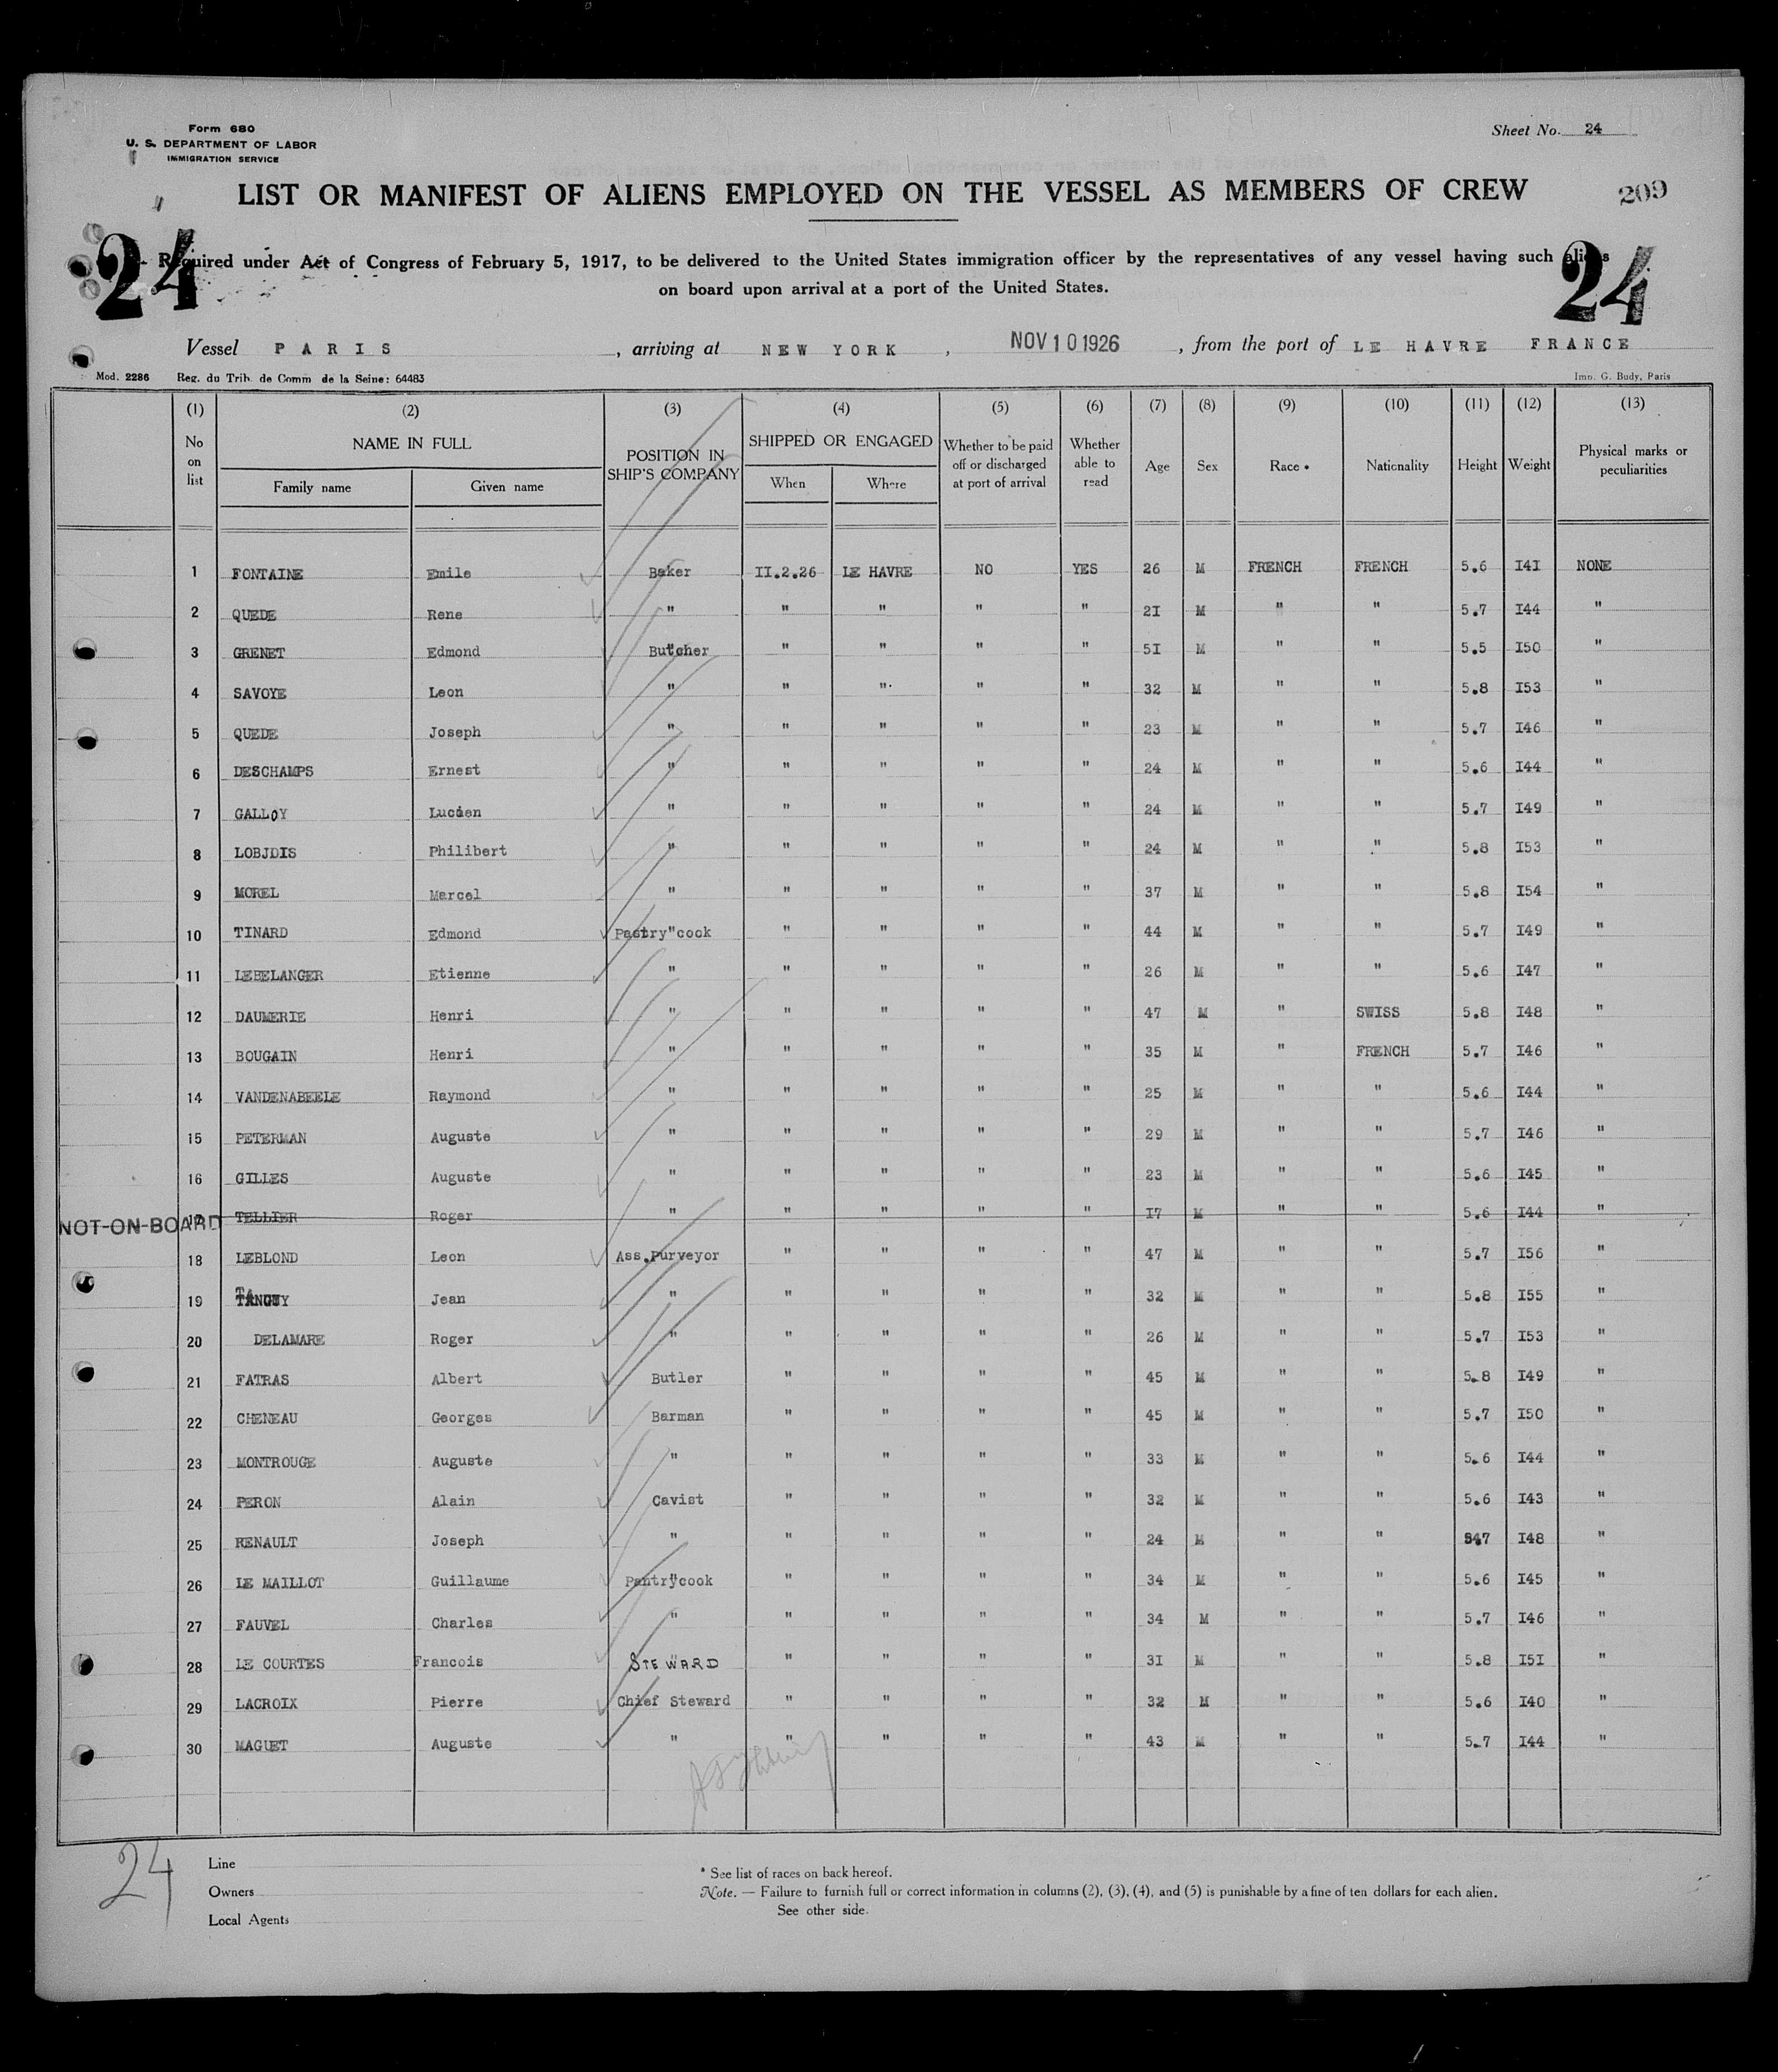 Form 680
U. S. DEPARTMENT OF LABOR
IMMIGRATION SERVICE
Sheet No. 24
LIST OR MANIFEST OF ALIENS EMPLOYED ON THE VESSEL AS MEMBERS OF CREW
209
24
24
Required under Act of Congress of February 5, 1917, to be delivered to the United States immigration officer by the representatives of any vessel having such aliens
on board upon arrival at a port of the United States.
Vessel PARIS , arriving at NEW YORK , NOV 10 1926 , from the port of LE HAVRE FRANCE
Mod. 2286 Reg. du Trib. de Comm de la Seine: 64483 Imp. G. Budy, Paris
(1) (2) (3) (4) (5) (6) (7) (8) (9) (10) (11) (12) (13)
No on list NAME IN FULL Family name Given name POSITION IN SHIP'S COMPANY SHIPPED OR ENGAGED When Where Whether to be paid off or discharged at port of arrival Whether able to read Age Sex Race * Nationality Height Weight Physical marks or peculiarities
1 FONTAINE Emile Baker II.2.26 LE HAVRE NO YES 26 M FRENCH FRENCH 5.6 I4I NONE
2 QUEDE Rene " " " " " 2I M " " 5.7 I44 "
3 GRENET Edmond Butcher " " " " 5I M " " 5.5 I50 "
4 SAVOYE Leon " " " " " 32 M " " 5.8 I53 "
5 QUEDE Joseph " " " " " 23 M " " 5.7 I46 "
6 DESCHAMPS Ernest " " " " " 24 M " " 5.6 I44 "
7 GALLOY Lucien " " " " " 24 M " " 5.7 I49 "
8 LOBJDIS Philibert " " " " " 24 M " " 5.8 I53 "
9 MOREL Marcel " " " " " 37 M " " 5.8 I54 "
10 TINARD Edmond Pastry"cook " " " " 44 M " " 5.7 I49 "
11 LEBELANGER Etienne " " " " " 26 M " " 5.6 I47 "
12 DAUMERIE Henri " " " " " 47 M " SWISS 5.8 I48 "
13 BOUGAIN Henri " " " " " 35 M " FRENCH 5.7 I46 "
14 VANDENABEELE Raymond " " " " " 25 M " " 5.6 I44 "
15 PETERMAN Auguste " " " " " 29 M " " 5.7 I46 "
16 GILLES Auguste " " " " " 23 M " " 5.6 I45 "
NOT-ON-BOARD 17 TELLIER Roger " " " " " I7 M " " 5.6 I44 "
18 LEBLOND Leon Ass.Purveyor " " " " 47 M " " 5.7 I56 "
19 TANGUY Jean " " " " " 32 M " " 5.8 I55 "
20 DELAMARE Roger " " " " " 26 M " " 5.7 I53 "
21 FATRAS Albert Butler " " " " 45 M " " 5.8 I49 "
22 CHENEAU Georges Barman " " " " 45 M " " 5.7 I50 "
23 MONTROUGE Auguste " " " " " 33 M " " 5.6 I44 "
24 PERON Alain Cavist " " " " 32 M " " 5.6 I43 "
25 RENAULT Joseph " " " " " 24 M " " 5.7 I48 "
26 LE MAILLOT Guillaume Pantrycook " " " " 34 M " " 5.6 I45 "
27 FAUVEL Charles " " " " " 34 M " " 5.7 I46 "
28 LE COURTES Francois STEWARD " " " " 3I M " " 5.8 I5I "
29 LACROIX Pierre Chief Steward " " " " 32 M " " 5.6 I40 "
30 MAGUET Auguste " " " " " 43 M " " 5.7 I44 "
24
Line
Owners
Local Agents
* See list of races on back hereof.
Note. — Failure to furnish full or correct information in columns (2), (3), (4), and (5) is punishable by a fine of ten dollars for each alien.
See other side.